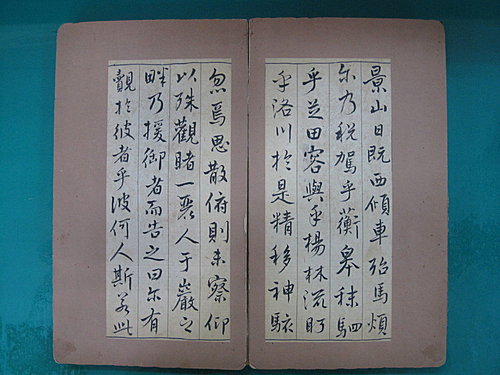 景山日既西傾車殆馬煩
尓乃稅駕乎蘅皋秣駟
乎芝田容與乎楊林流眄
乎洛川於是精移神駭
忽焉思散俯則未察仰
以殊觀睹一麗人于巖之
畔乃援御者而告之曰尓有
覿於彼者乎彼何人斯若此